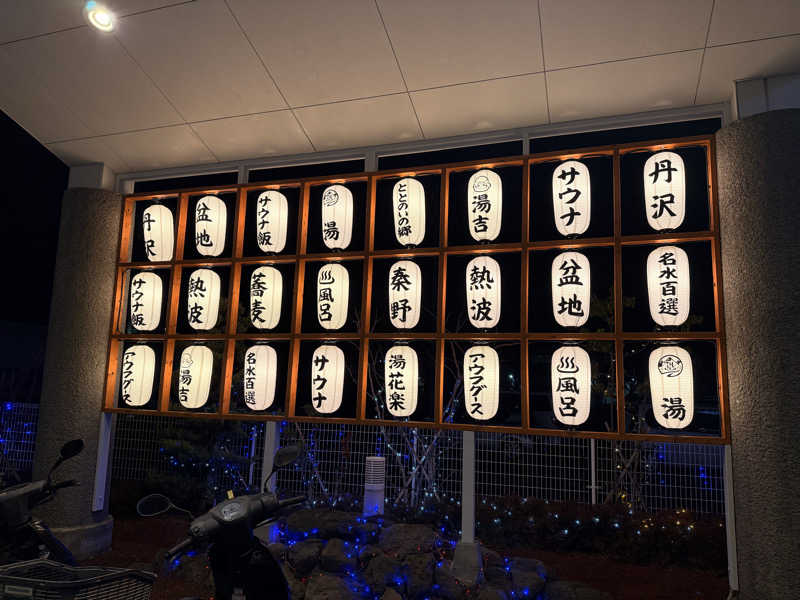 丹沢 盆地 サウナ飯 湯 ととのいの郷 湯吉 サウナ 丹沢
サウナ 熱波 蕎麦 風呂 秦野 熱波 盆地 名水百選
アウフグース 湯吉 名水百選 サウナ 湯花楽 アウフグース 風呂 湯